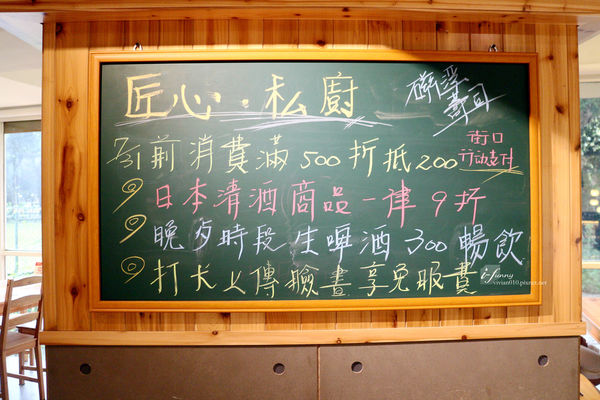 匠心・私廚
壽司
7/31前消費滿500折抵200
街口
行動支付
日本清酒商品一律9折
晚夕時段生啤酒300暢飲
打卡上傳臉書享免服費
i-funny
vivian010.pixnet.net